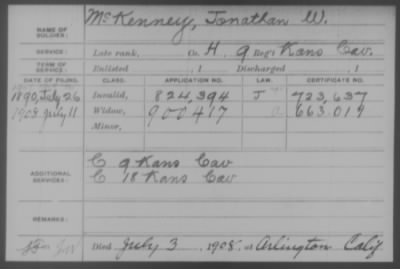 NAME OF SOLDIER: McKenney, Jonathan W.
SERVICE: Late rank, Co. H, 9 Reg't Kans Cav.
TERM OF SERVICE: Enlisted , 1 Discharged , 1
DATE OF FILING. CLASS. APPLICATION NO. LAW. CERTIFICATE NO.
1890, July 26 Invalid, 824,394 J 723,637
1908 July 11 Widow, 900417 663.019
Minor,
ADDITIONAL SERVICES: C 9 Kans Cav
C 18 Kans Cav
REMARKS:
Died July 3, 1908, at Arlington Calif